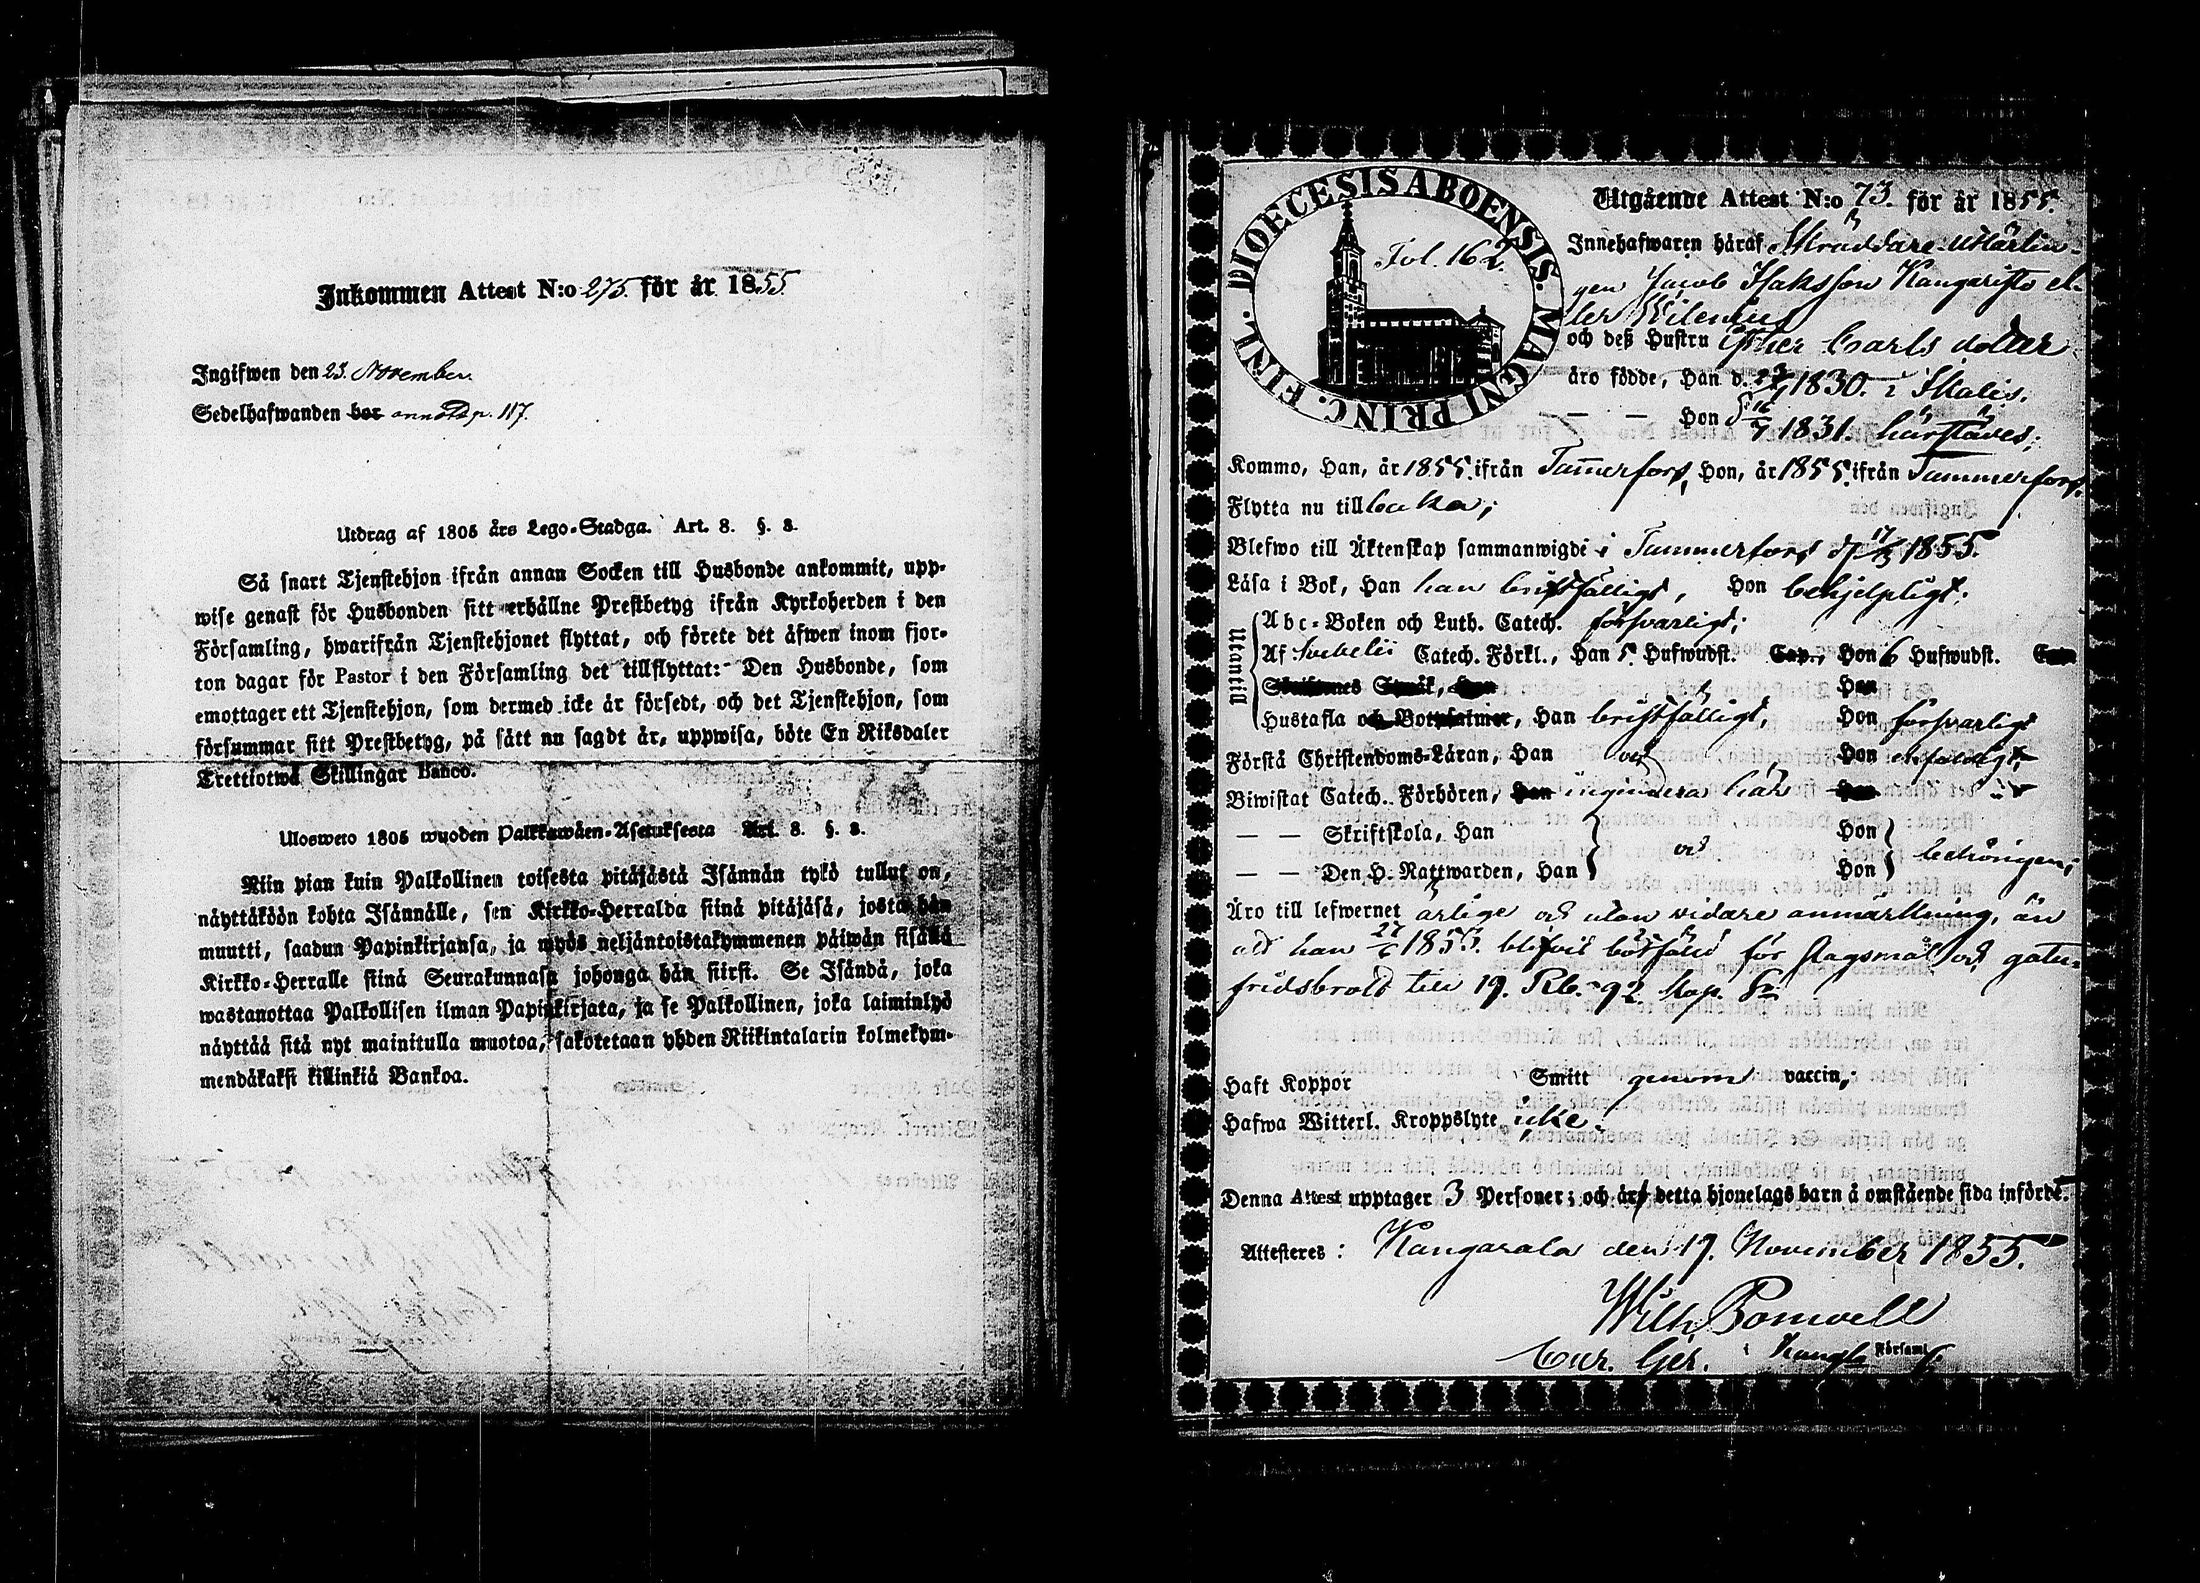 Inkommen Attest N:o 275. för år 1855
Ingifwen den 23. November.
Sedelhafwanden bor annot. p. 117.
Utdrag af 1805 års Lego-Stadga. Art. 8. §. 3.
Så snart Tjenstehjon ifrån annan Socken till Husbonde ankommit, upp-
wise genast för Husbonden sitt erhållne Prestbetyg ifrån Kyrkoherden i den
Församling, hwarifrån Tjenstehjonet flyttat, och förete det äfwen inom fjor-
ton dagar för Pastor i den Församling det tillflyttat: Den Husbonde, som
emottager ett Tjenstehjon, som dermed icke är försedt, och det Tjenstehjon, som
försummar sitt Prestbetyg, på sätt nu sagdt är, uppwisa, böte En Riksdaler
Trettiotwå Skillingar Banco.
Uloswero 1805 wuoden Palkkawäen-Asetuksesta Art. 8. §. 3.
Niin pian kuin Palkollinen toisesta pitäjästä Isännän tykö tullut on,
näyttäköön kohta Isännälle, sen Kirkko-Herralda siinä pitäjäsä, josta hän
muutti, saadun Papinkirjansa, ja myös neljäntoistakymmenen päiwän sisällä
Kirkko-Herralle siinä Seurakunnasa johonga hän siirsi. Se Isändä, joka
wastanottaa Palkollisen ilman Papinkirjata, ja se Palkollinen, joka laiminlyö
näyttää sitä nyt mainitulla muotoa, sakotetaan yhden Riikintalarin kolmekym-
mendäkaksi killinkiä Bankoa.
DIOECESIS ABOENSIS. MAGNI PRINC. FINL.
Fol. 162.
Utgående Attest N:o 73. för år 1855.
Innehafwaren häraf Skräddare-Lärlin-
gen Jacob Isaksson Kangaristo el-
ler Wilenius
och deß Hustru Esther Carls dotter
äro födde, Han d. 1830. i Ikalis.
— — Hon d. 16/7 1831. härstädes;
Kommo, Han, år 1855. ifrån Tam̄erfors, Hon, år 1855. ifrån Tammerfors.
Flytta nu tillbaka;
Blefwo till Äktenskap sammanwigde i Tammerfors d. 1855.
Läsa i Bok, Han han bristfälligt, Hon behjelpligt;
Utantill
Abc-Boken och Luth. Catech. försvarligt;
Af Svebelii Catech. Förkl., Han 5. Hufwudst. Cap., Hon 6 Hufwudst. Cap.
Skriftenes Språk, Han Hon
Hustafla och Botpsalmer, Han bristfälligt, Hon försvarligt
Förstå Christendoms-Läran, Han och Hon enfaldigt.
Biwistat Catech. Förhören, Han ingendera här Hon
— — Skriftskola, Han och Hon behörigen;
— — Den H. Nattwarden, Han Hon
Äro till lefwernet ärlige och utan vidare anmärkning, än
att han 1855. blifvit bötfäld för slagsmål och gatu-
fridsbrott till 19. Rb. 92. kop. Sr.
Haft Koppor Smitt genom vaccin;
Hafwa Witterl. Kroppslyte icke.
Denna Attest upptager 3 Personer; och äro detta hjonelags barn å omstående sida införde.
Attesteres: Kangasala den 19. November 1855.
Wilh. Bonwell
Cur. Ger. i Kangla Församl.